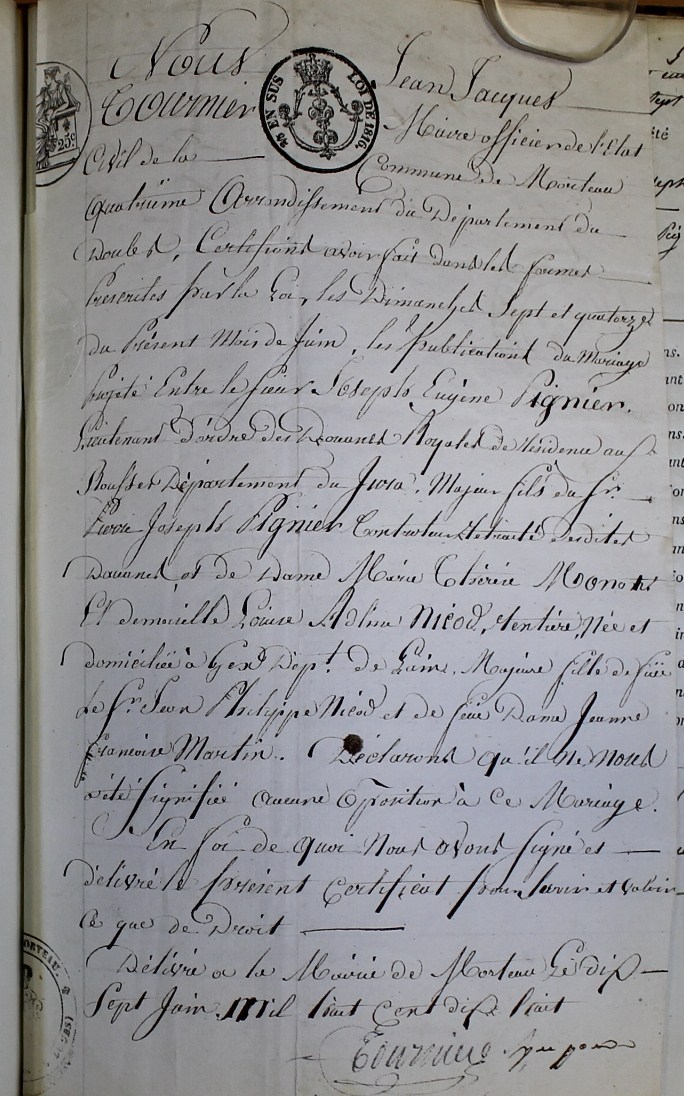 Nous Jean Jacques
Tournier Maire officier de l'Etat
EN SUS LOI DE 1816.
25c
Civil de la Commune de Morteau
quatrième Arrondissement du Département du
Doubs, Certifions avoir fait dans les formes
Prescrites par la Loi, les Dimanches Sept et quatorze
du Présent Mois de Juin, les publications du Mariage
projeté Entre le sieur Joseph Eugène Pignier.
Lieutenant d'ordre des Douanes Royales de résidence aux
Rousses Département du Jura, Majeur fils du Sr.
Pierre Joseph Pignier Controleur Retraité desdites
Douanes et de Dame Marie Thérèse Monot
Et demoiselle Louise Adline Nicod, Rentière, Née et
domiciliée à Gex Dépt. de L'ain, Majeure fille de feu
Le Sr. Jean Philippe Nicod et de feue Dame Jeanne
francoise Martin. Déclarons qu'il ne Nous
a été Signifiée aucune Oposition à Ce Mariage.
En foi de quoi Nous avons signé et
délivré le présent Certificat pour Servir et valoir
Ce que de Droit
Délivré a la Mairie de Morteau Le dix
Sept Juin Mil huit Cent dix huit
Tournier
MORTEAU.